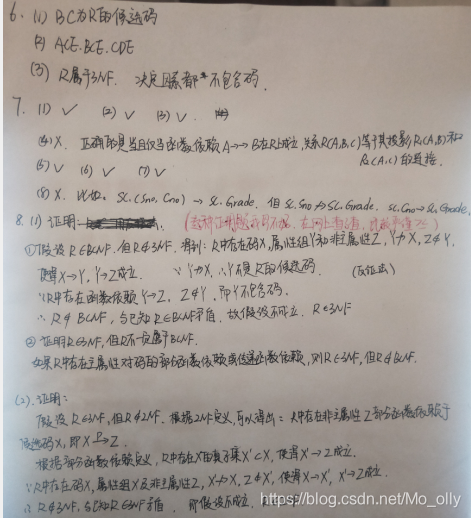 6. (1) BC为R的候选码
(2) ACE.BCE.CDE
(3) R属于3NF. 决定因素都不包含码.
7. (1) ✓ (2) ✓ (3) ✓
(4) X. 当且仅当函数依赖A→→B在R上成立,关系R(A,B,C)等于其投影R₁(A,B)和
R₂(A,C)的连接.
(5) ✓ (6) ✓ (7) ✓
(8) X. 比如. SC.(Sno, Cno) → SC.Grade. 但 SC.Sno ↛ SC.Grade. SC.Cno ↛ SC.Grade.
8. (1) 证明
① 假设R∈BCNF.但R∉3NF. 得到: R中存在码X,属性组Y和非主属性Z, Y↛X, Z∉Y.
使得X→Y, Y→Z成立. ∵Y↛X, ∴Y不是R的候选码. (反证法)
∵R中存在函数依赖Y→Z, Z∉Y, 即Y不包含码.
∴R∉BCNF,与已知R∈BCNF矛盾. 故假设不成立. R∈3NF
② 证明R∈3NF,但R不一定属于BCNF.
如果R中存在主属性对码的部分函数依赖或传递函数依赖,则R∈3NF,但R∉BCNF.
(2). 证明:
假设R∈3NF,但R∉2NF. 根据2NF定义,可以得出: R中存在非主属性Z部分函数依赖于
候选码X,即X→Z.
根据部分函数依赖定义,R中存在X的真子集X'⊂X,使得X'→Z成立.
∵R中存在码X,属性组X'及非主属性Z, X'↛X, Z∉X', 使得X→X', X'→Z成立.
∴R∉3NF.与已知R∈3NF矛盾. 即假设不成立.
https://blog.csdn.net/Mo_olly